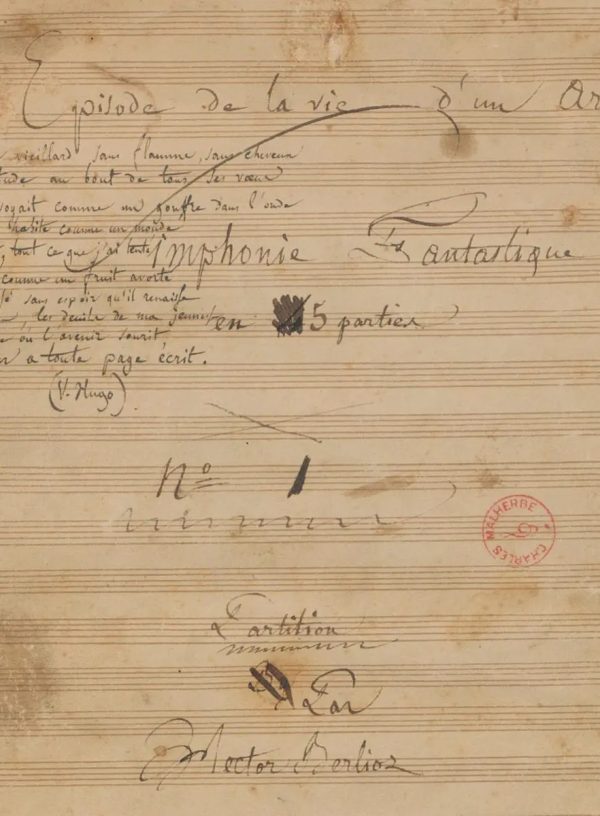 Episode de la vie d'un Ar
vieillard sans flamme, sans cheveux
tude au bout de tous ses vœux
voyait comme un gouffre dans l'onde
habite comme un monde
, tout ce que j'ai tenté
Simphonie Fantastique
comme un fruit avorté
sans espoir qu'il renaisse
les deuils de ma jeunesse
en 5 parties
où l'avenir sourit,
a toute page écrit.
(V. Hugo)
Nº 1
CHARLES MALHERBE
Partition
Par
Hector Berlioz